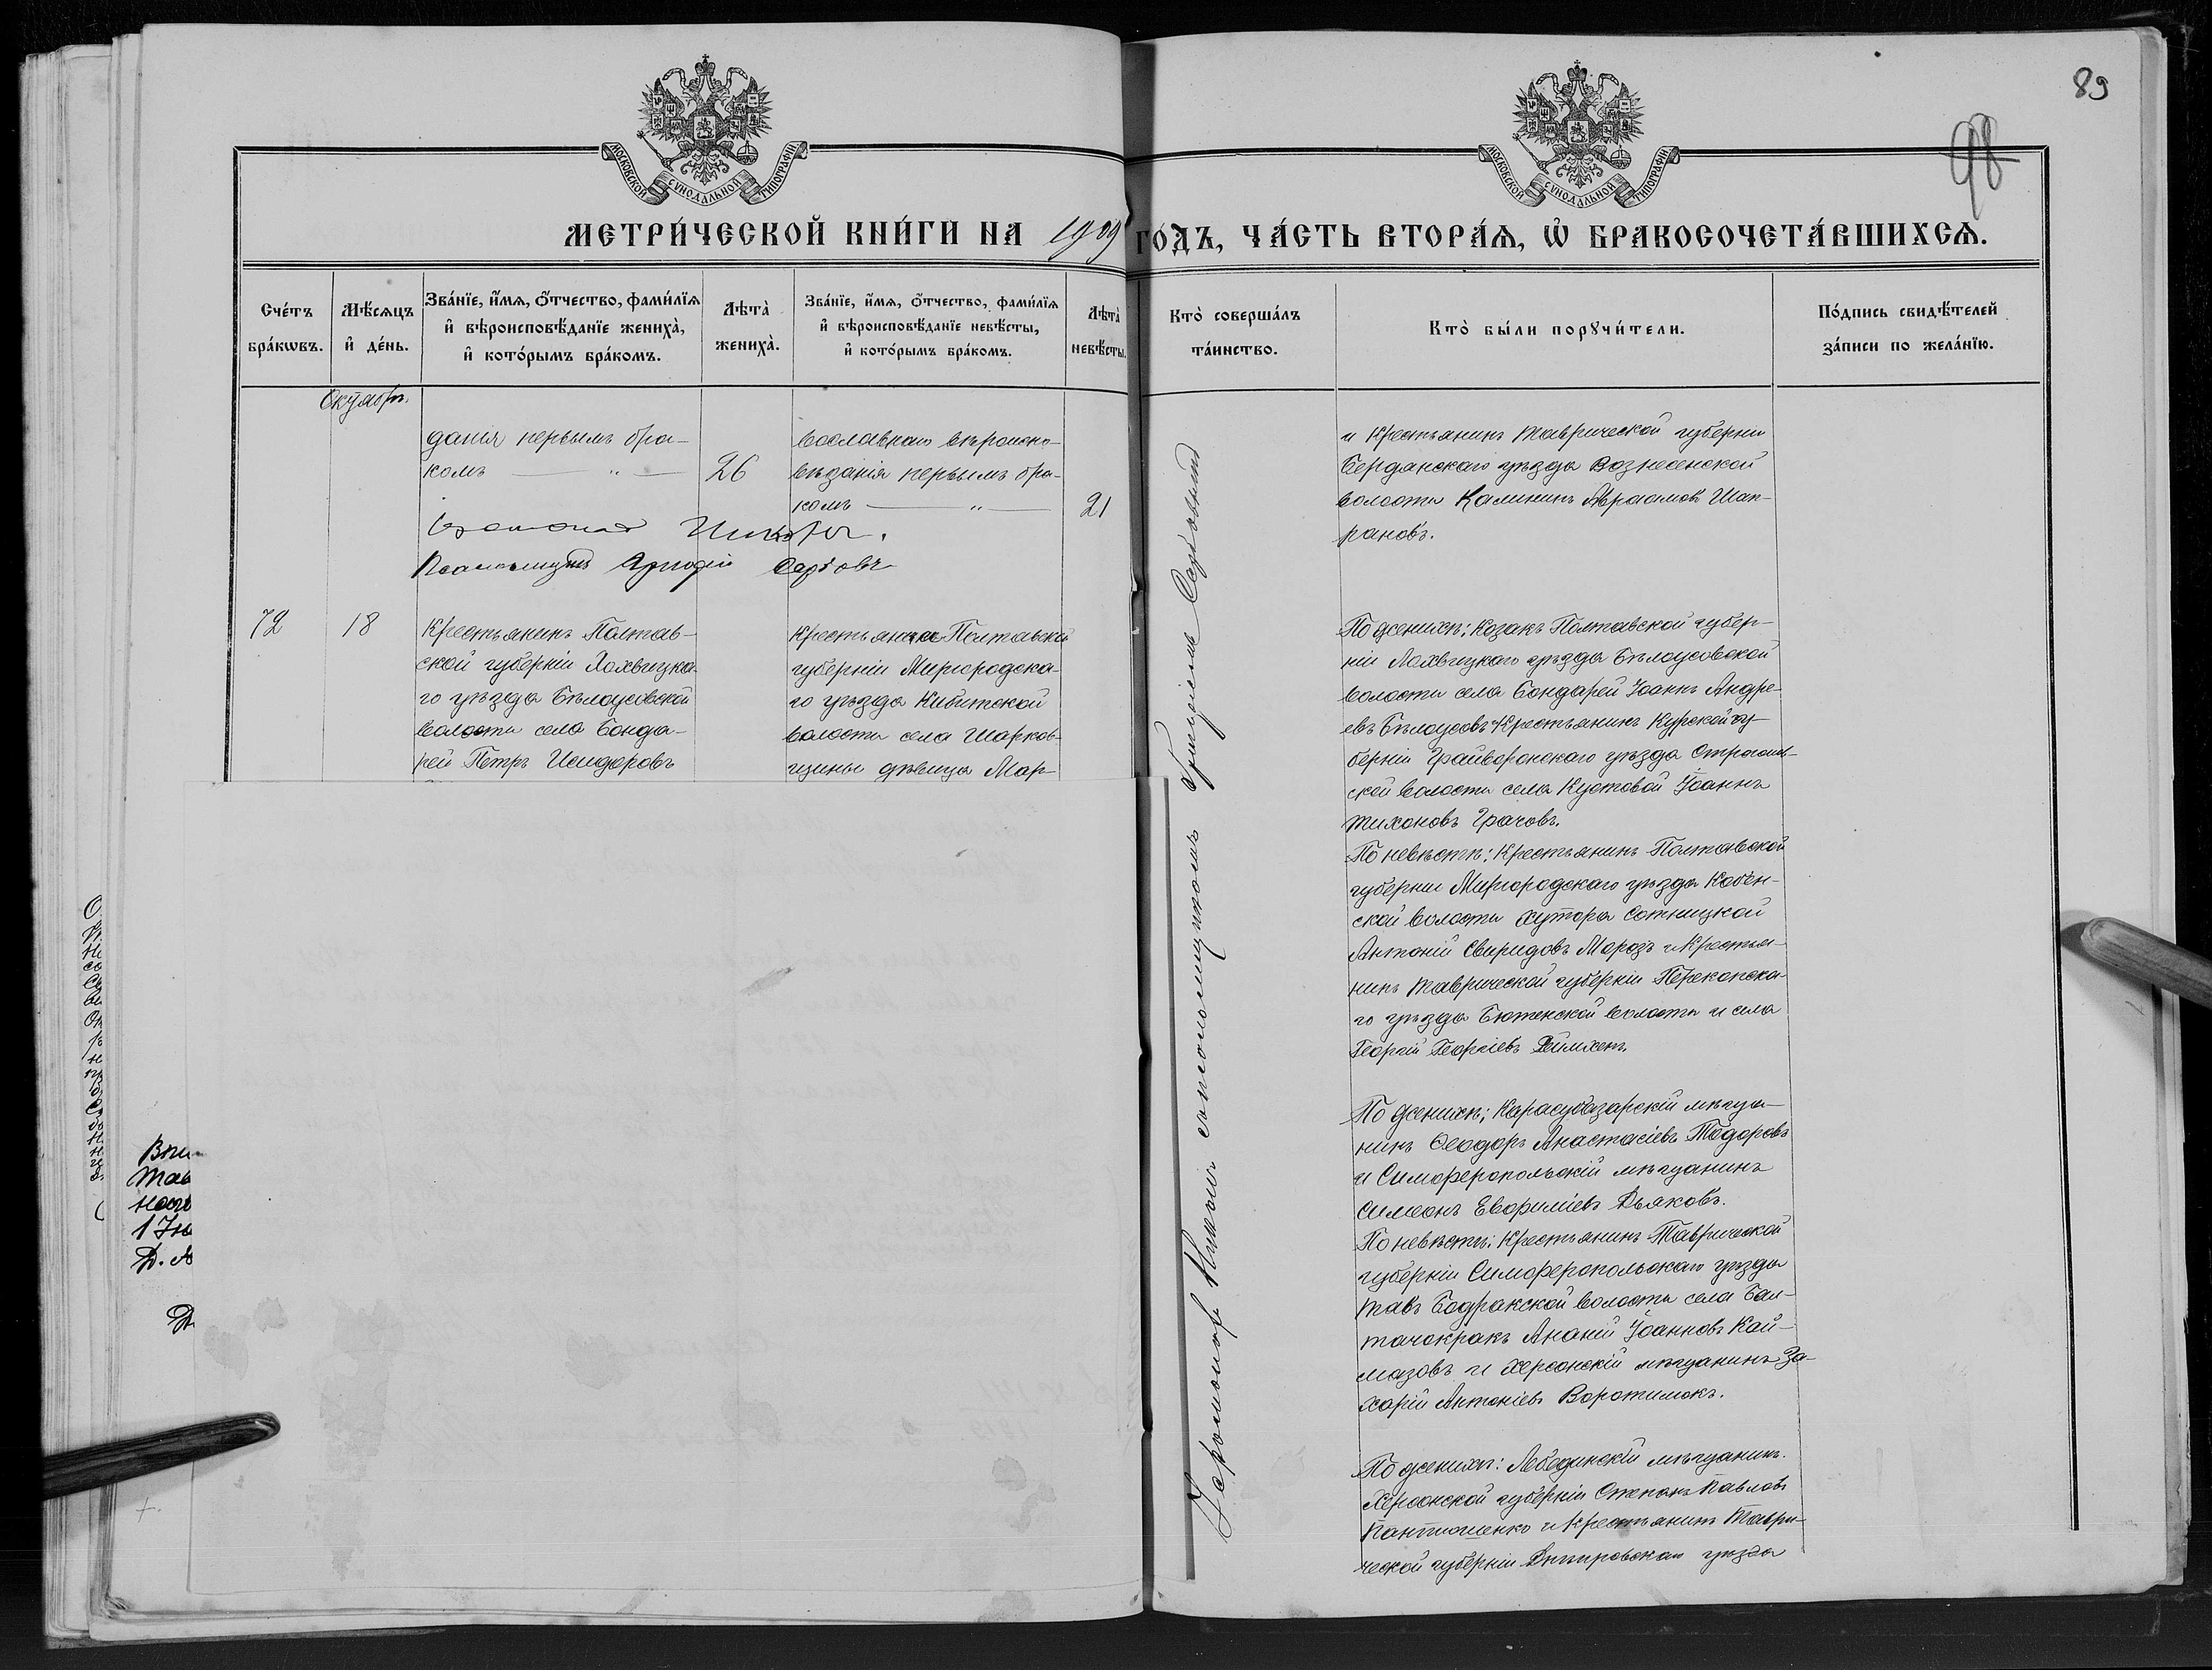 89
98
МОСКОВСКОЙ СУНОДАЛЬНОЙ ТИПОГРАФІИ
МОСКОВСКОЙ СУНОДАЛЬНОЙ ТИПОГРАФІИ
МЕТРИ́ЧЕСКОЙ КНИ́ГИ НА 1909 ГО́ДЪ, ЧА́СТЬ ВТОРА́Я, Ѡ҆ БРАКОСОЧЕТА́ВШИХСЯ.
Сче́тъ бра́кѡвъ.
Мѣ́сяцъ и҆ де́нь.
Зва́нїе, и҆́мя, ѻ҆́тчество, фами́лїя
и҆ вѣроисповѣ́данїе жениха̀,
и҆ кото́рымъ бра́комъ.
Лѣта̀ жениха̀.
Зва́нїе, и҆́мя, ѻ҆́тчество, фами́лїя
и҆ вѣроисповѣ́данїе невѣ́сты,
и҆ кото́рымъ бра́комъ.
Лѣта̀ невѣ́сты.
Кто̀ соверша́лъ
та́инство.
Кто̀ бы́ли порꙋчи́тели.
По́дпись свидѣ́телей
за́писи по жела́нїю.
Октября.
данія первымъ бра-
комъ — " —
26
вославнаго вѣроиспо-
вѣданія первымъ бра-
комъ — " —
21
Псаломщикъ
72
18
Крестьянинъ Полтав-
ской губерніи Лохвицка-
го уѣзда Бѣлоусовской
волости села Бонда-
рей Петръ Исидоровъ
Крестьянка Полтавской
губерніи Миргородска-
го уѣзда Кибитской
волости села Шарков-
щины дѣвица Мар-
Іеромонахъ
и Крестьянинъ Таврической губерніи
Бердянскаго уѣзда Вознесенской
волости Калинникъ Авраамовъ Шап-
рановъ.
По женихѣ: Козакъ Полтавской губер-
ніи Лохвицкаго уѣзда Бѣлоусовской
волости села Бондарей Іоаннъ Андре-
евъ Бѣлоусовъ и Крестьянинъ Курской гу-
берніи Грайворонскаго уѣзда
ской волости села Кустовой Іоаннъ
Тихоновъ Грачовъ.
По невѣстѣ: Крестьянинъ Полтавской
губерніи Миргородскаго уѣзда
ской волости хутора Сотницкой
Антоній Свиридовъ Морозъ и Крестья-
нинъ Таврической губерніи Перекопска-
го уѣзда Бютенской волости и села
Георгій Георгіевъ
По женихѣ: Карасубазарскій мѣща-
нинъ Ѳеодоръ Анастасіевъ Тодоровъ
и Симферопольскій мѣщанинъ
Симеонъ Евфиміевъ Дьяковъ.
По невѣстѣ: Крестьянинъ Таврической
губерніи Симферопольскаго уѣзда
Тавъ Бодракской волости села Бай-
тачокракъ Ананій Іоанновъ Кай-
мазовъ и Херсонскій мѣщанинъ За-
харій Антоніевъ Воротилокъ.
По женихѣ: Лебединскій мѣщанинъ
Херсонской губерніи Степанъ Павловъ
Пантюшенко и Крестьянинъ Таври-
ческой губерніи Днѣпровскаго уѣзда